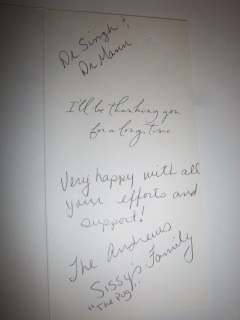 Dr Singh &
Dr Mann
I'll be thanking you
for a long time
Very happy with all
your efforts and
support!
The Andrews
Sissy's Family
"The Pig"..